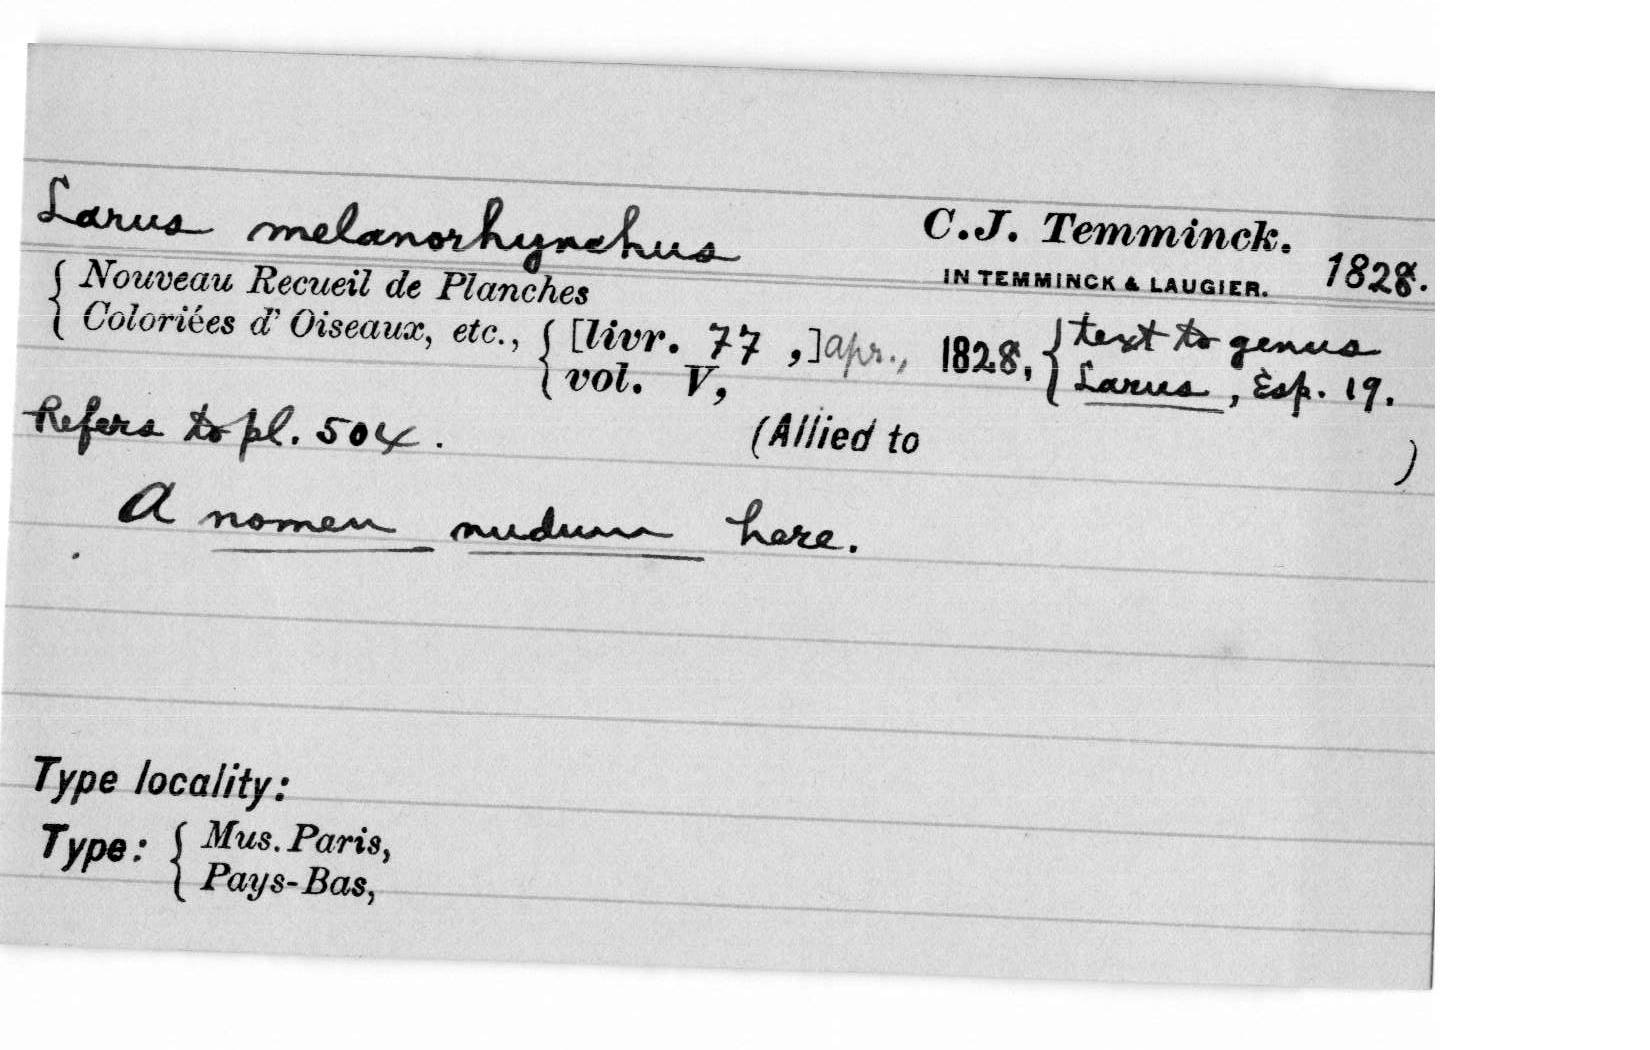 Larus melanorhynchus C.J. Temminck.
IN TEMMINCK & LAUGIER. 1828.
{ Nouveau Recueil de Planches
Coloriées d' Oiseaux, etc., { [livr. 77 ,] apr., 1828, { text to genus
vol. V, Larus, Esp. 19.
Refers to pl. 504. (Allied to )
A nomen nudum here.
Type locality:
Type: { Mus. Paris,
Pays-Bas,